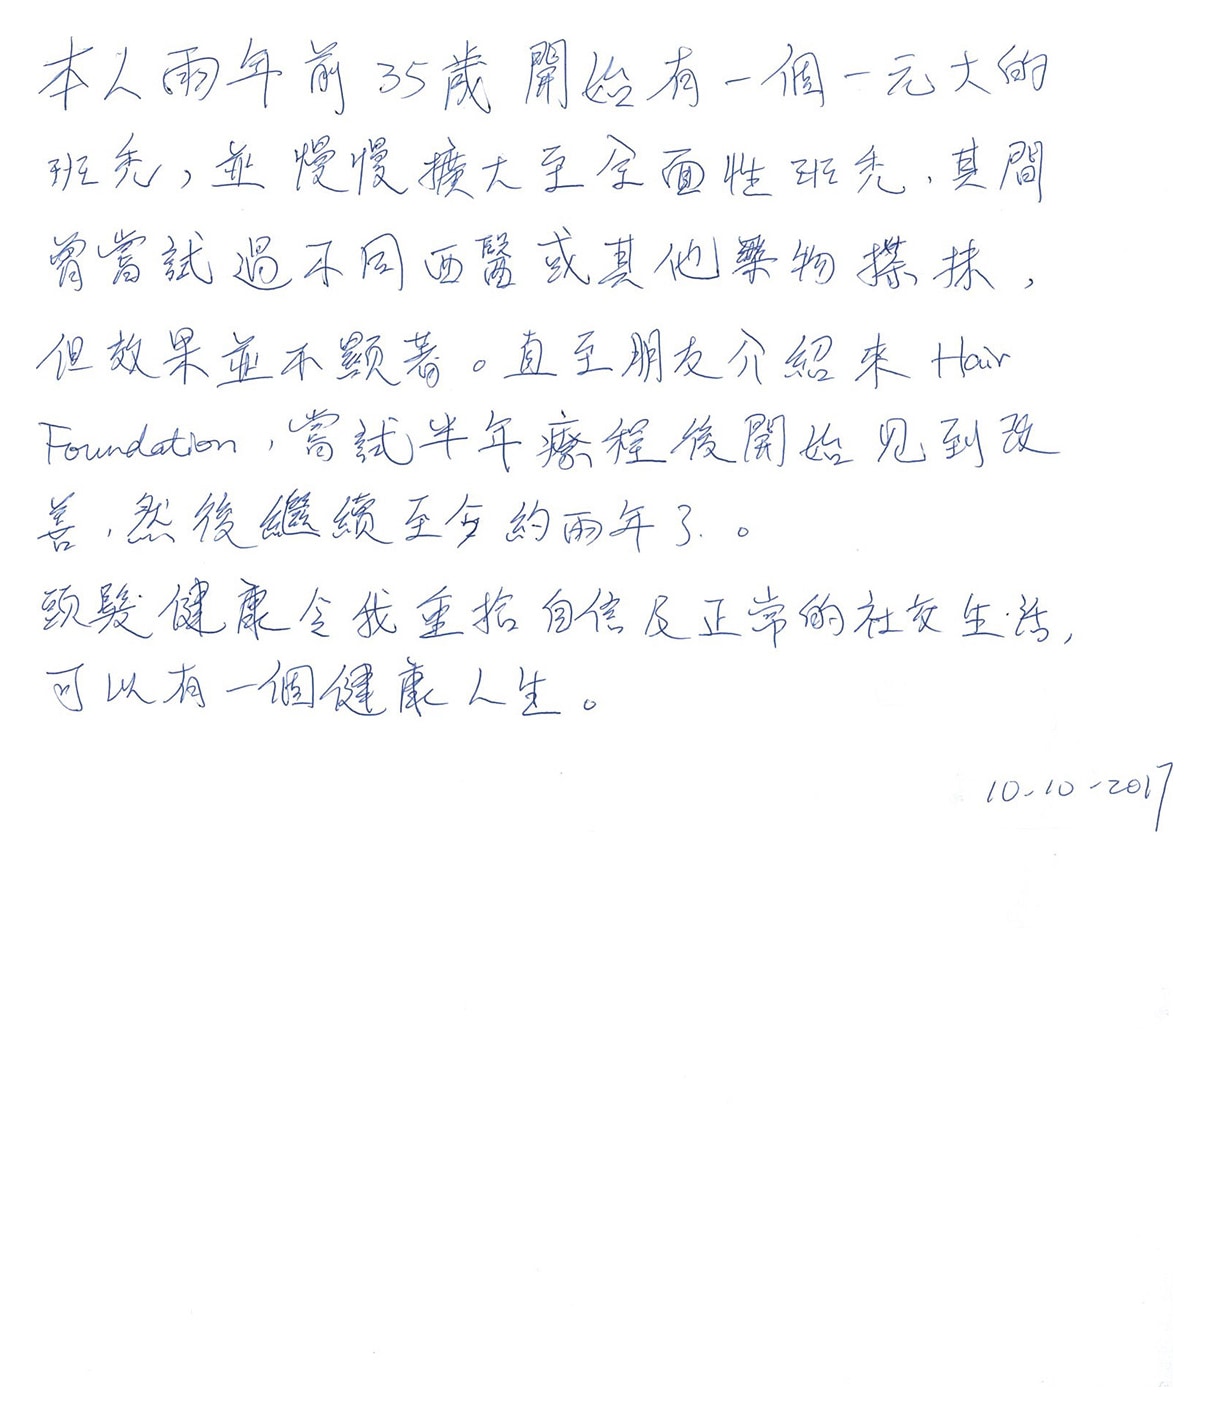 本人兩年前35歲開始有一個一元大的
班禿，並慢慢擴大至全面性班禿，其間
曾嘗試過不同西醫或其他藥物搽抹，
但效果並不顯著。直至朋友介紹來 Hair
Foundation，嘗試半年療程後開始見到改
善，然後繼續至今約兩年了。
頭髮健康令我重拾自信及正常的社交生活，
可以有一個健康人生。
10-10-2017